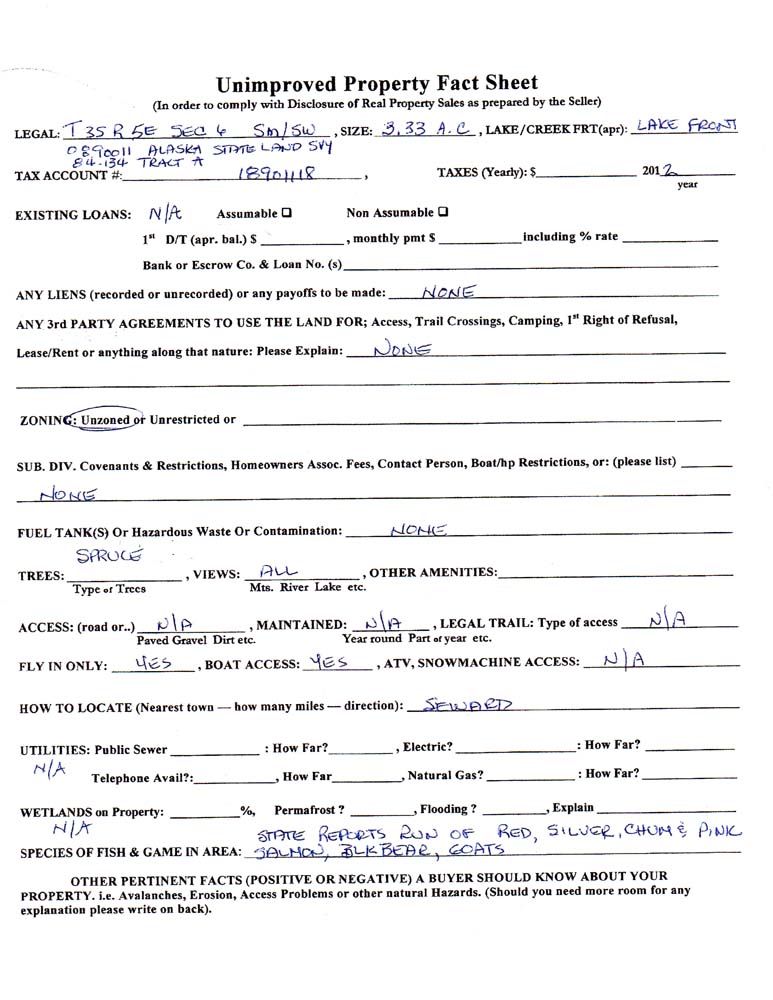 Unimproved Property Fact Sheet
(In order to comply with Disclosure of Real Property Sales as prepared by the Seller)
LEGAL: T 35 R 5E SEC 6 SM/SW , SIZE: 3.33 A.C , LAKE/CREEK FRT(apr): LAKE FRONT
0890011 ALASKA STATE LAND SVY
84-134 TRACT A
TAX ACCOUNT #: 18901118 , TAXES (Yearly): $ 2012
year
EXISTING LOANS: N/A Assumable ☐ Non Assumable ☐
1st D/T (apr. bal.) $ , monthly pmt $ including % rate
Bank or Escrow Co. & Loan No. (s)
ANY LIENS (recorded or unrecorded) or any payoffs to be made: NONE
ANY 3rd PARTY AGREEMENTS TO USE THE LAND FOR; Access, Trail Crossings, Camping, 1st Right of Refusal,
Lease/Rent or anything along that nature: Please Explain: NONE
ZONING: Unzoned or Unrestricted or
SUB. DIV. Covenants & Restrictions, Homeowners Assoc. Fees, Contact Person, Boat/hp Restrictions, or: (please list)
NONE
FUEL TANK(S) Or Hazardous Waste Or Contamination: NONE
SPRUCE
TREES: , VIEWS: ALL , OTHER AMENITIES:
Type of Trees Mts. River Lake etc.
ACCESS: (road or..) N/A , MAINTAINED: N/A , LEGAL TRAIL: Type of access N/A
Paved Gravel Dirt etc. Year round Part of year etc.
FLY IN ONLY: YES , BOAT ACCESS: YES , ATV, SNOWMACHINE ACCESS: N/A
HOW TO LOCATE (Nearest town — how many miles — direction): SEWARD
UTILITIES: Public Sewer : How Far? , Electric? : How Far?
N/A
Telephone Avail?: , How Far , Natural Gas? : How Far?
WETLANDS on Property: %, Permafrost ? , Flooding ? , Explain
N/A
STATE REPORTS RUN OF RED, SILVER, CHUM & PINK
SPECIES OF FISH & GAME IN AREA: SALMON, BLK BEAR, GOATS
OTHER PERTINENT FACTS (POSITIVE OR NEGATIVE) A BUYER SHOULD KNOW ABOUT YOUR
PROPERTY. i.e. Avalanches, Erosion, Access Problems or other natural Hazards. (Should you need more room for any
explanation please write on back).